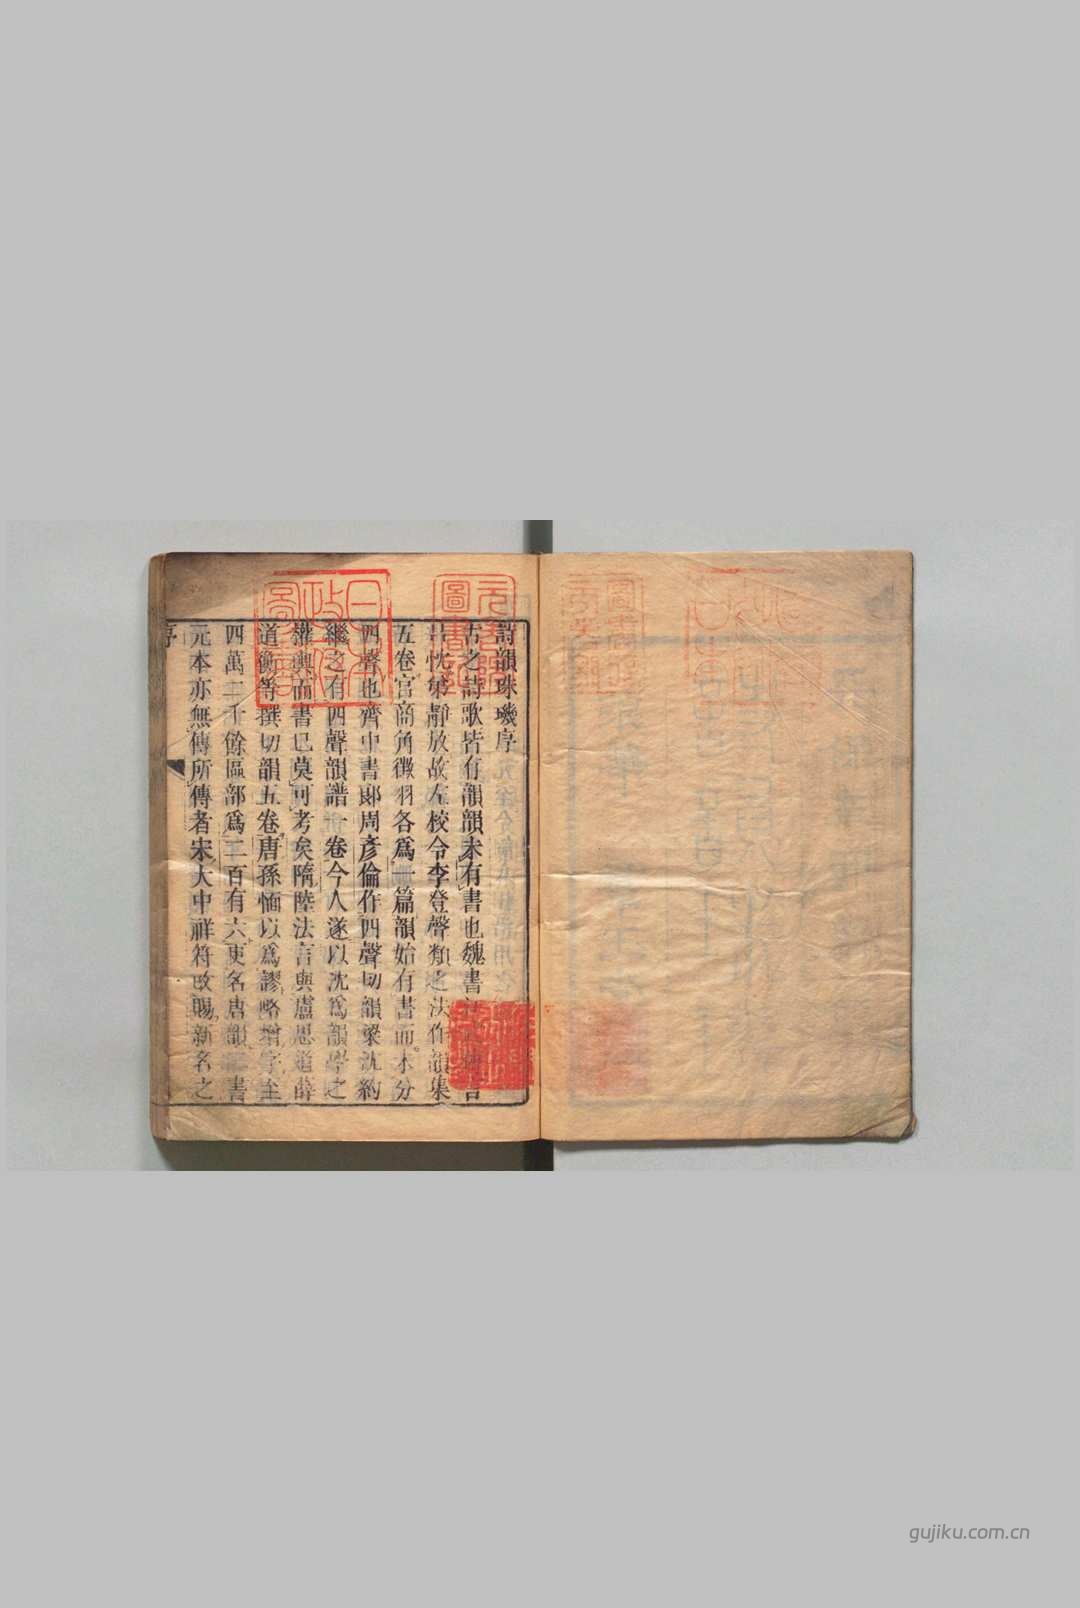 詩韻珠璣序
古之詩歌皆有韻韻未有書也魏書
弟靜放故左校令李登聲類之法作韻集
五卷宮商角徵羽各為一篇韻始有書而未分
四聲也齊中書郎周彥倫作四聲切韻梁沈約
繼之有四聲韻譜一卷今人遂以沈為韻學之
權輿而書已莫可考矣隋陸法言與盧思道薛
道衡等撰切韻五卷唐孫愐以為謬略增字至
四萬二千餘區部為二百有六更名唐韻書
元本亦無傳所傳者宋大中祥符改賜新名之
序
日本
政府
圖書
圖書
gujiku.com.cn